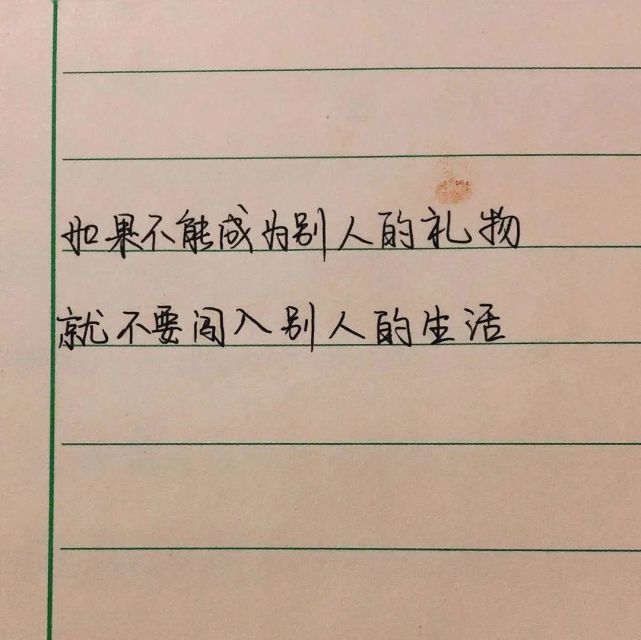 如果不能成为别人的礼物
就不要闯入别人的生活